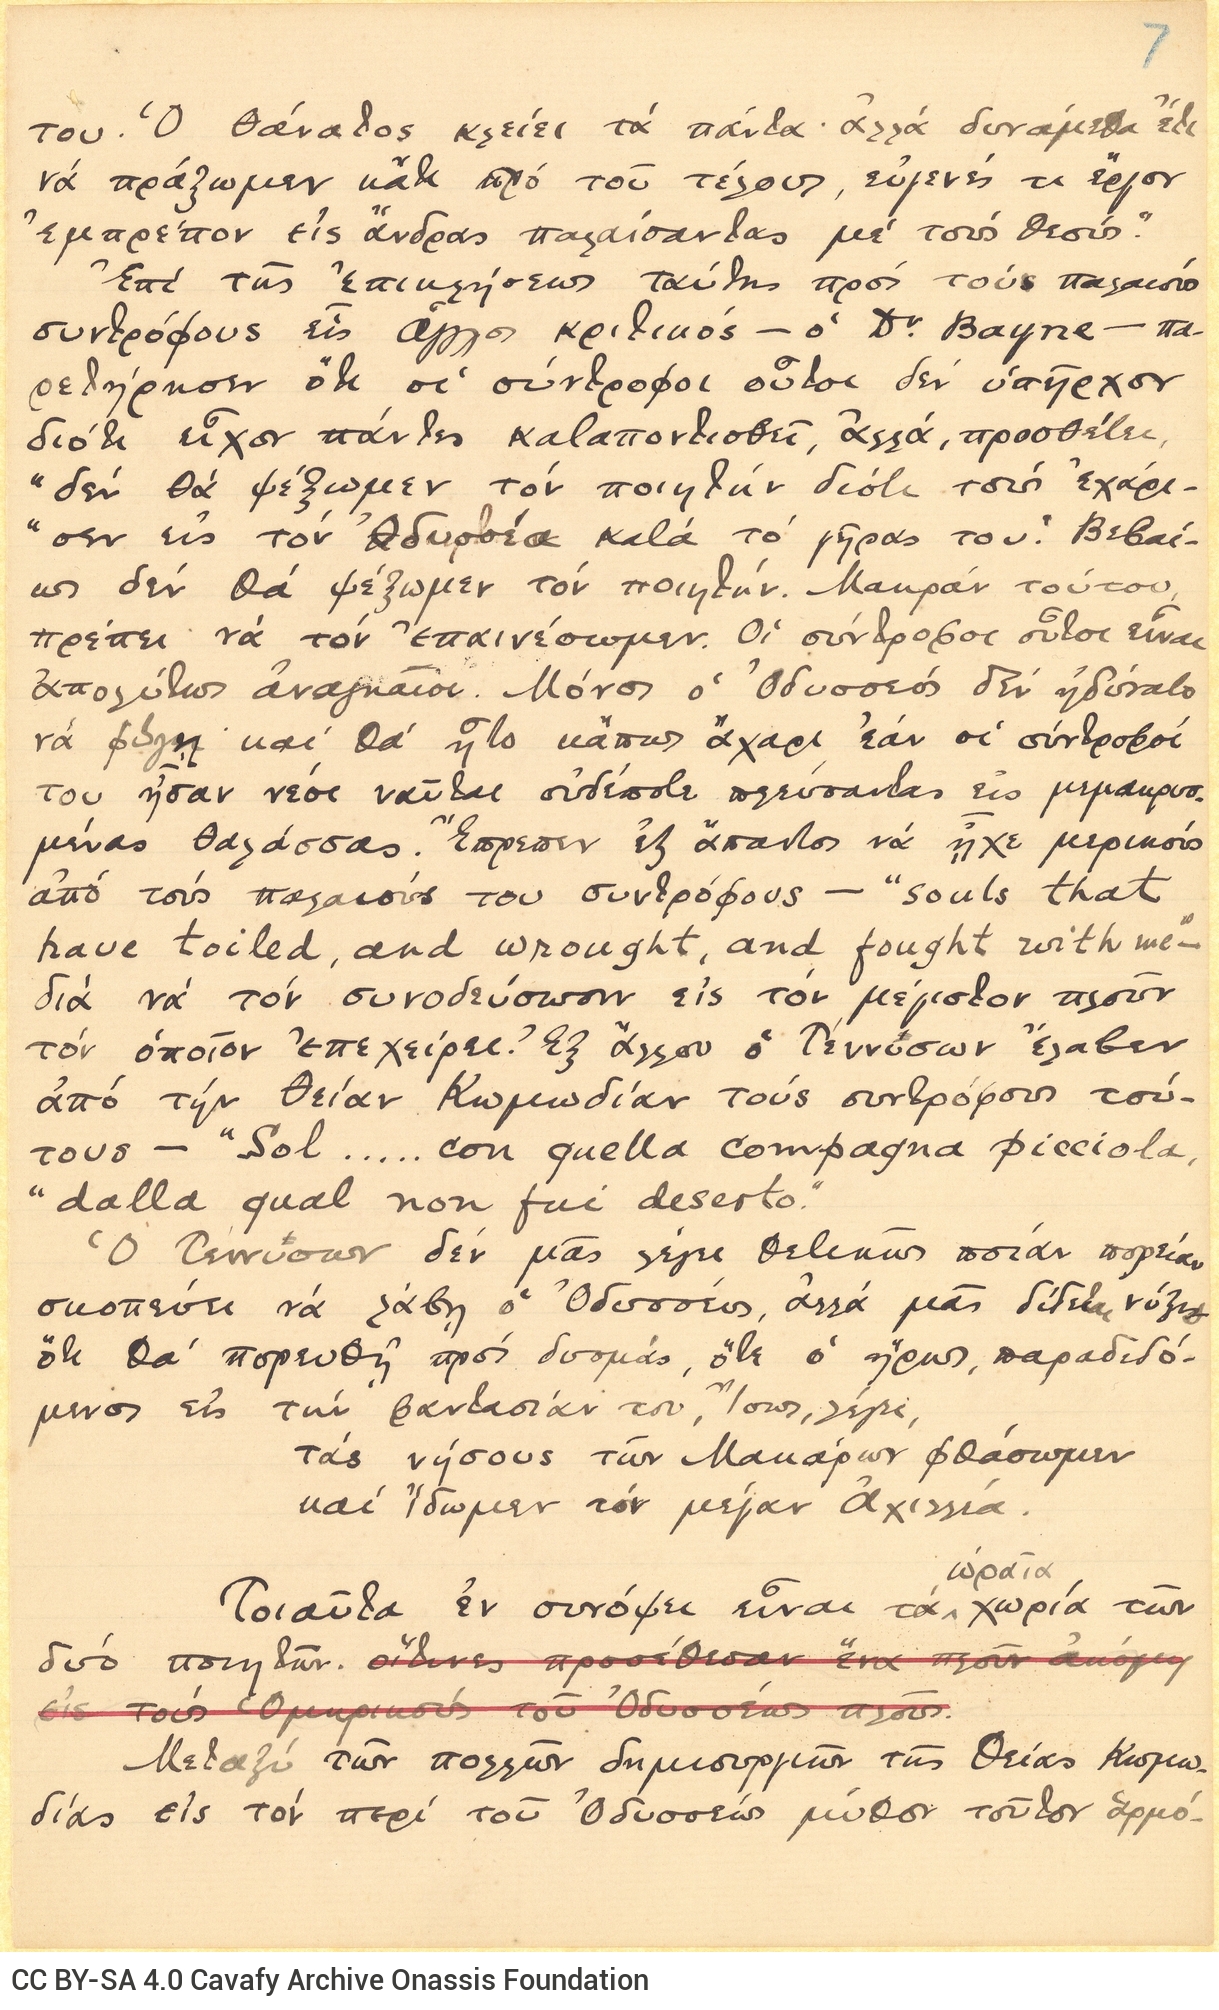 7
του. Ὁ θάνατος κλείει τά πάντα· ἀλλά δυνάμεθα ἔτι
νά πράξωμεν κἄτι πρό τοῦ τέλους, εὐγενές τι ἔργον
ἐμπρέπον εἰς ἄνδρας παλαίσαντας μέ τούς θεούς."
Ἐπί τῆς ἐπικλήσεως ταύτης πρός τούς παλαιούς
συντρόφους εἷς ἄλλος κριτικός — ὁ Dr. Bayne — πα-
ρετήρησεν ὅτι οἱ σύντροφοι οὗτοι δέν ὑπῆρχον
διότι εἶχον πάντες καταποντισθεῖ, ἀλλά, προσθέτει,
"δέν θά ψέξωμεν τόν ποιητήν διότι τούς ἐχάρι-
"σεν εἰς τόν Ὀδυσσέα κατά τό γῆρας του". Βεβαί-
ως δέν θά ψέξωμεν τόν ποιητήν. Μακράν τούτου,
πρέπει νά τόν ἐπαινέσωμεν. Οἱ σύντροφοι οὗτοι εἶναι
ἀπολύτως ἀναγκαῖοι. Μόνος ὁ Ὀδυσσεύς δέν ἠδύνατο
νά φύγῃ καί θά ἦτο κἄπως ἄχαρι ἐάν οἱ σύντροφοί
του ἦσαν νέοι ναῦται οὐδέποτε πλεύσαντας εἰς μεμακρυσ-
μένας θαλάσσας. Ἔπρεπεν ἐξ ἅπαντος νά ᾖχε μερικούς
ἀπό τούς παλαιούς του συντρόφους — "souls that
have toiled, and wrought, and fought with me" —
διά νά τόν συνοδεύσωσιν εἰς τόν μέγιστον πλοῦν
τόν ὁποῖον ἐπεχείρει. Ἐξ ἄλλου ὁ Τέννυσων ἔλαβεν
ἀπό τήν Θείαν Κωμωδίαν τούς συντρόφους τού-
τους — "Sol ..... con quella compagna picciola,
"dalla qual non fui deserto."
Ὁ Τέννυσων δέν μᾶς λέγει θετικῶς ποίαν πορείαν
σκοπεύει νά λάβῃ ὁ Ὀδυσσεύς, ἀλλά μᾶς δίδεται νύξις
ὅτι θά πορευθῇ πρός δυσμάς, ὅτε ὁ ἥρως, παραδιδό-
μενος εἰς τήν φαντασίαν του, Ἴσως, λέγει,
τάς νήσους τῶν Μακάρων φθάσωμεν
καί ἴδωμεν τόν μέγαν Ἀχιλλέα.
ὡραῖα
Τοιαῦτα ἐν συνόψει εἶναι τά χωρία τῶν
δύο ποιητῶν. οἵτινες προσέθεσαν ἕνα πλοῦν ἀκόμη
εἰς τούς Ὁμηρικούς τοῦ Ὀδυσσέως πλοῦς.
Μεταξύ τῶν πολλῶν δημιουργιῶν τῆς Θείας Κωμω-
δίας εἰς τόν περί τοῦ Ὀδυσσέως μύθον τοῦτον ἁρμό-
CC BY-SA 4.0 Cavafy Archive Onassis Foundation